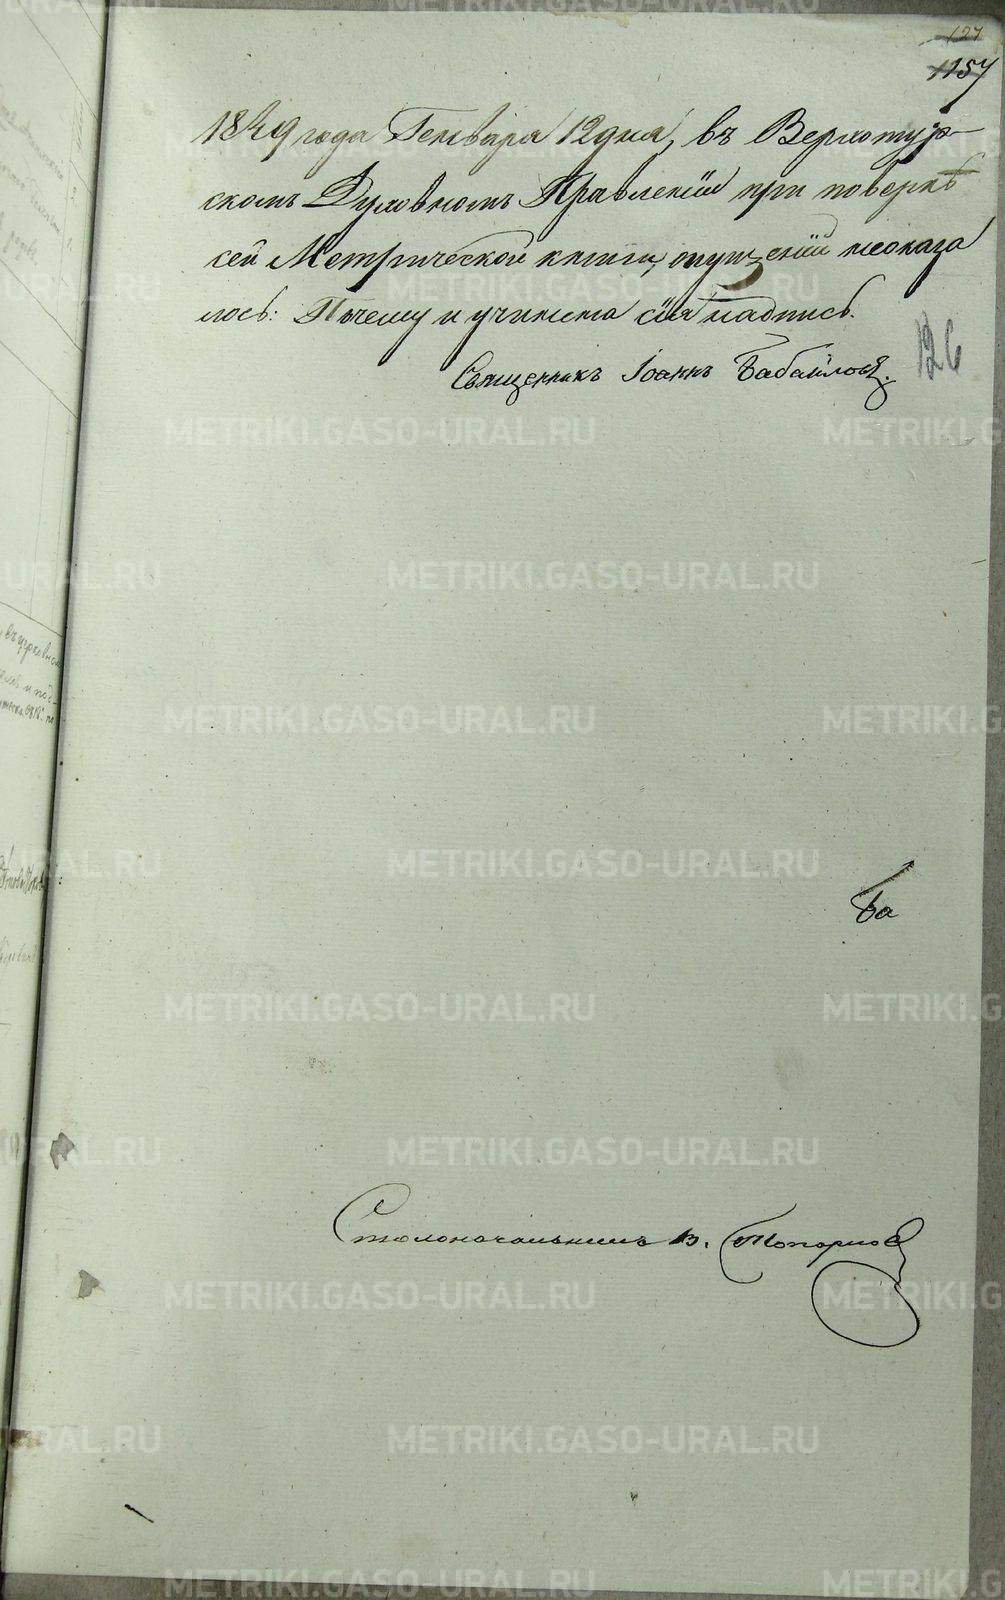 127
157
1849 года Генваря 12 дня, въ Верхотур-
скомъ Духовномъ Правленіи при поверкѣ
сей Метрической книги, опущеній неоказа
лось: Почему и учинена сія надпись.
Священникъ Іоаннъ Бабайловъ.
126
Ба
Столоначальникъ В. Топорковъ
METRIKI.GASO-URAL.RU